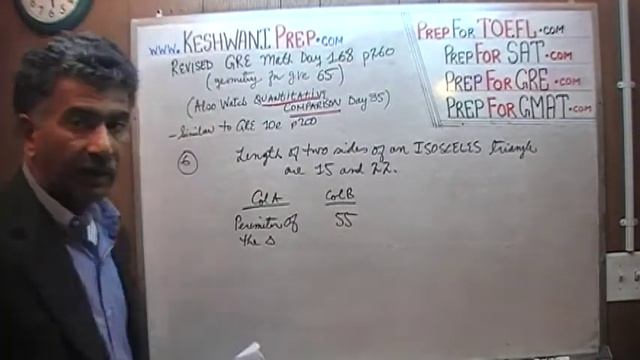 www.KESHWANIPREP.com
REVISED GRE Math Day 168 p260
(geometry for gre 65)
(Also Watch QUANTITATIVE
COMPARISON Day 35)
- Similar to GRE 10e p260
PREPFORTOEFL.com
PREPFORSAT.com
PREPFORGRE.com
PREPFORGMAT.com
6 Length of two sides of an ISOSCELES triangle
are 15 and 22.
Col A Col B
Perimeter of 55
the Δ